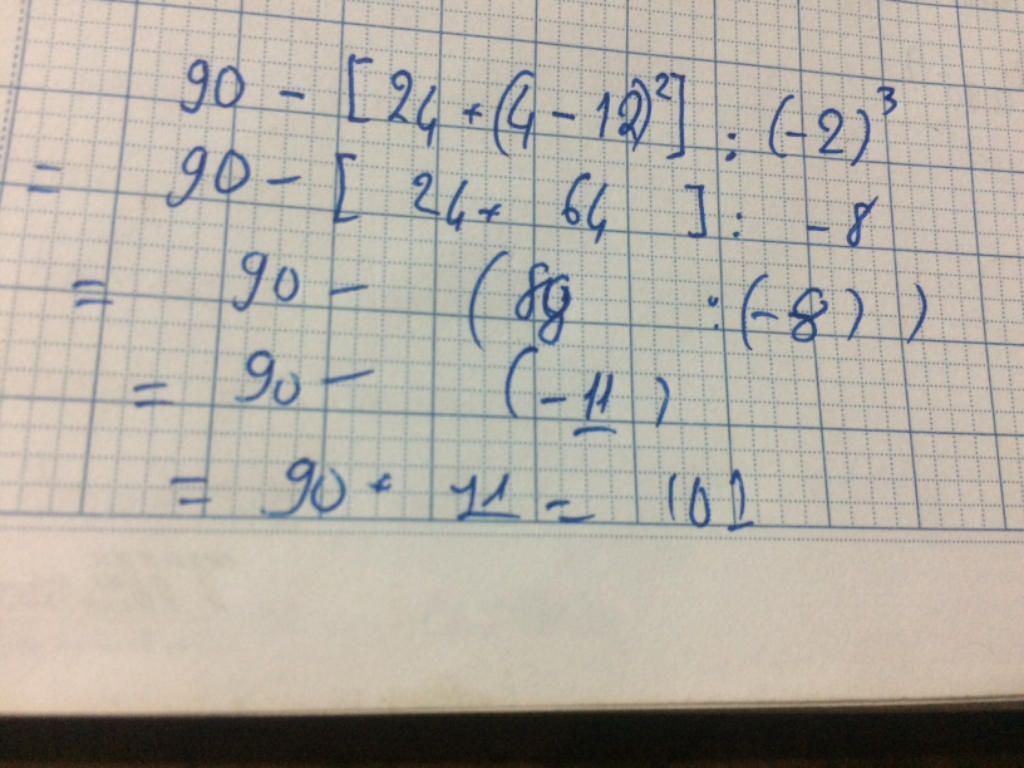 90 - [24 + (4 - 12)²] : (-2)³
= 90 - [ 24 + 64 ] : -8
= 90 - (88 : (-8) )
= 90 - (-11)
= 90 + 11 = 101